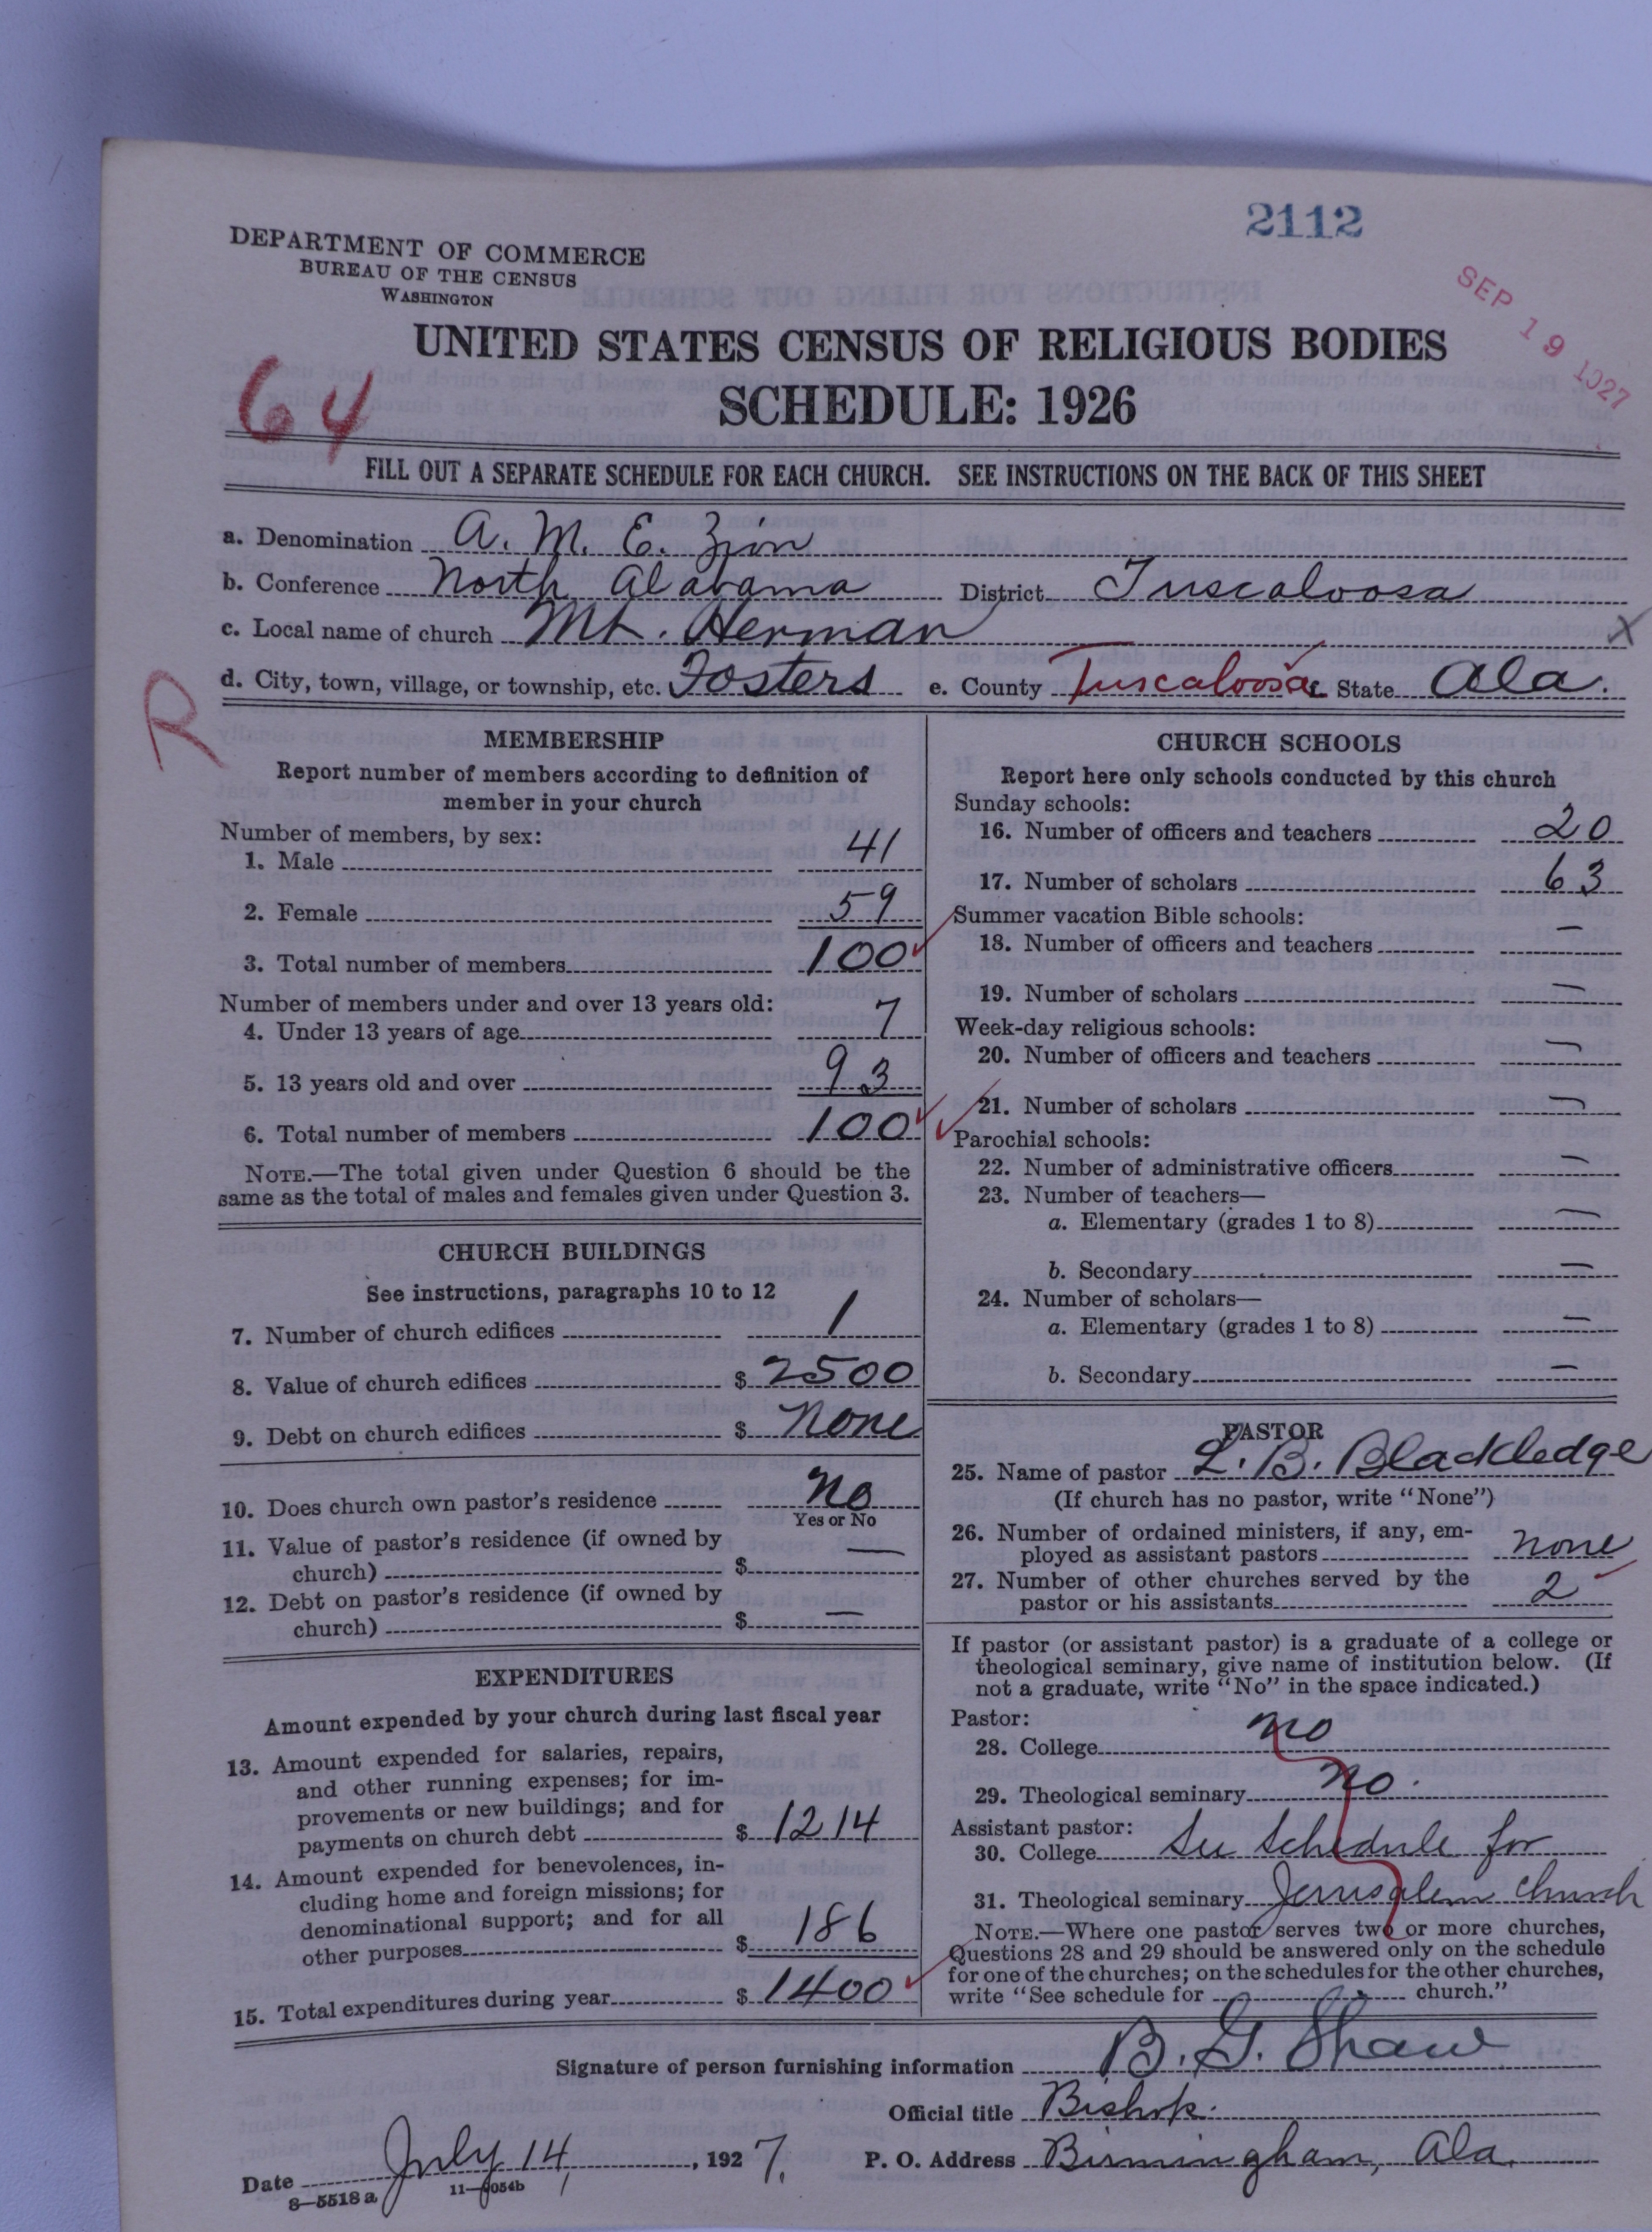 2112
DEPARTMENT OF COMMERCE
BUREAU OF THE CENSUS
WASHINGTON
SEP 19 1927
UNITED STATES CENSUS OF RELIGIOUS BODIES
SCHEDULE: 1926
64
FILL OUT A SEPARATE SCHEDULE FOR EACH CHURCH. SEE INSTRUCTIONS ON THE BACK OF THIS SHEET
a. Denomination A. M. E. Zion
b. Conference North Alabama District Tuscaloosa
c. Local name of church Mt. Herman X
d. City, town, village, or township, etc. Fosters e. County Tuscaloosa State Ala.
R
MEMBERSHIP
Report number of members according to definition of
member in your church
Number of members, by sex:
1. Male 41
2. Female 59
3. Total number of members 100
Number of members under and over 13 years old:
4. Under 13 years of age 7
5. 13 years old and over 93
6. Total number of members 100
NOTE.—The total given under Question 6 should be the
same as the total of males and females given under Question 3.
CHURCH BUILDINGS
See instructions, paragraphs 10 to 12
7. Number of church edifices 1
8. Value of church edifices $ 2500
9. Debt on church edifices $ None
10. Does church own pastor's residence No
Yes or No
11. Value of pastor's residence (if owned by
church) $ —
12. Debt on pastor's residence (if owned by
church) $ —
EXPENDITURES
Amount expended by your church during last fiscal year
13. Amount expended for salaries, repairs,
and other running expenses; for im-
provements or new buildings; and for
payments on church debt $ 1214
14. Amount expended for benevolences, in-
cluding home and foreign missions; for
denominational support; and for all
other purposes $ 186
15. Total expenditures during year $ 1400
CHURCH SCHOOLS
Report here only schools conducted by this church
Sunday schools:
16. Number of officers and teachers 20
17. Number of scholars 63
Summer vacation Bible schools:
18. Number of officers and teachers —
19. Number of scholars —
Week-day religious schools:
20. Number of officers and teachers —
21. Number of scholars —
Parochial schools:
22. Number of administrative officers —
23. Number of teachers—
a. Elementary (grades 1 to 8) —
b. Secondary —
24. Number of scholars—
a. Elementary (grades 1 to 8) —
b. Secondary —
PASTOR
25. Name of pastor L. B. Blackledge
(If church has no pastor, write "None")
26. Number of ordained ministers, if any, em-
ployed as assistant pastors none
27. Number of other churches served by the
pastor or his assistants 2
If pastor (or assistant pastor) is a graduate of a college or
theological seminary, give name of institution below. (If
not a graduate, write "No" in the space indicated.)
Pastor:
28. College no
29. Theological seminary no.
Assistant pastor:
30. College See Schedule for
31. Theological seminary Jerusalem church
NOTE.—Where one pastor serves two or more churches,
Questions 28 and 29 should be answered only on the schedule
for one of the churches; on the schedules for the other churches,
write "See schedule for church."
Signature of person furnishing information B. G. Shaw
Official title Bishop.
Date July 14, 1927. P. O. Address Birmingham, Ala.
8—5518 a 11—9054b